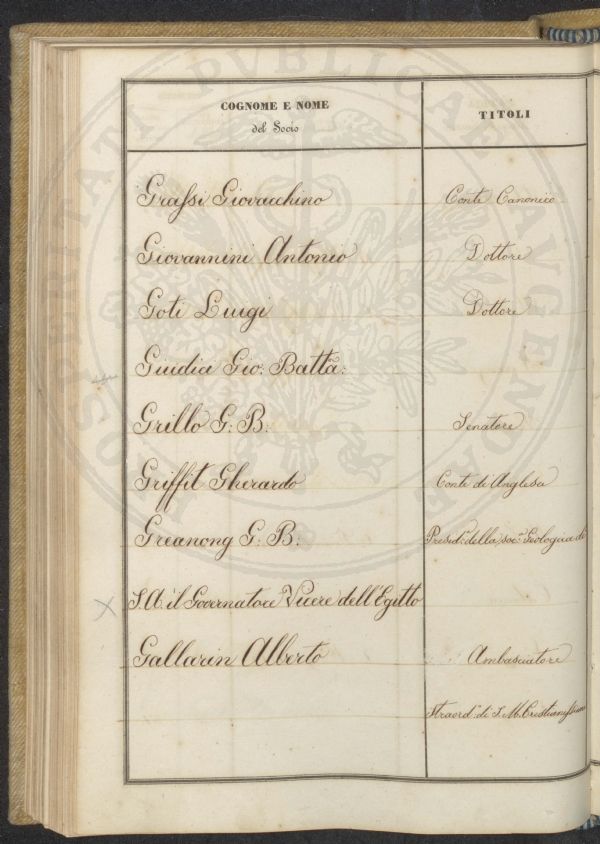 COGNOME E NOME TITOLI
del Socio
Grassi Giovacchino Conte Canonico
Giovannini Antonio Dottore
Goti Luigi Dottore
Guidici Gio: Batta:
Grillo G: B: Senatore
Griffit Gherardo Conte di Anglesa
Greanong G: B: Presid.e della soc.a Geologica di
S. A. il Governatore Vicere dell'Egitto
Gallarin Alberto Ambasciatore
Straord.o di S. M. Cristianissima